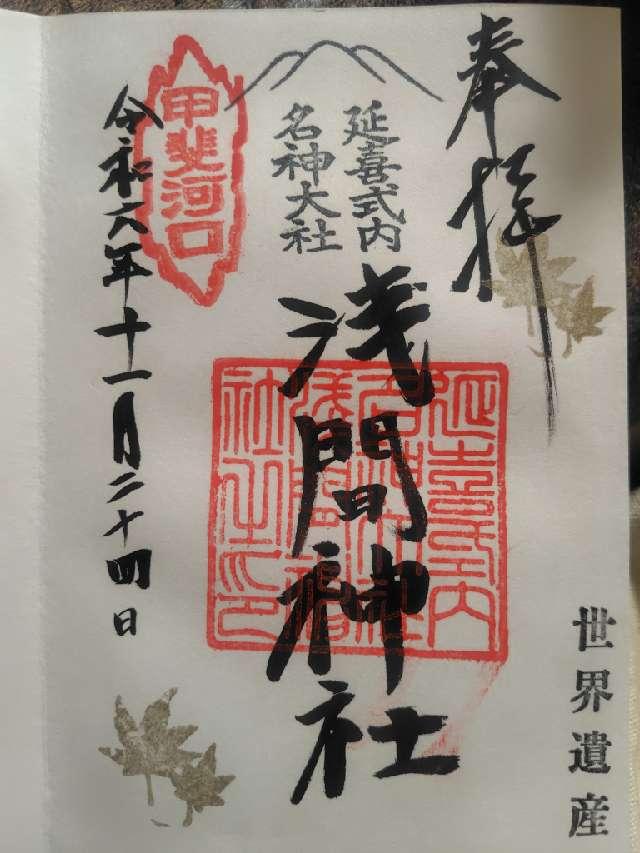 奉拝
世界遺産
延喜式内
名神大社
浅間神社
延喜式内
名神大社
浅間神
社之印
甲斐河口
令和六年十一月二十四日